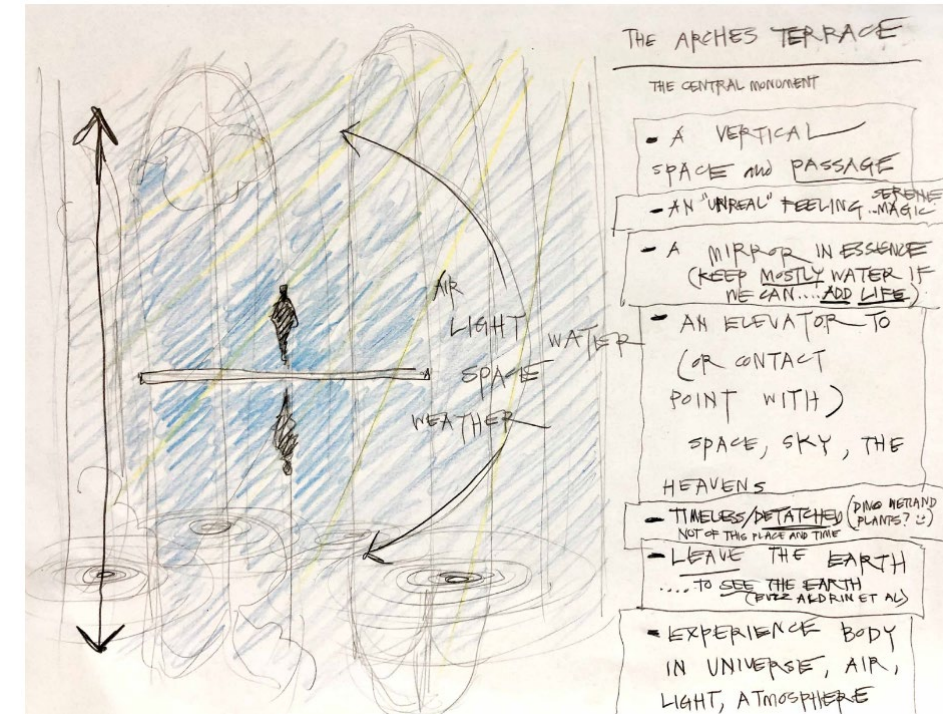 AIR
LIGHT
WATER
SPACE
WEATHER
THE ARCHES TERRACE
THE CENTRAL MONUMENT
- A VERTICAL
SPACE AND PASSAGE
- AN "UNREAL" FEELING... SERENE
MAGIC.
- A MIRROR IN ESSENCE
(KEEP MOSTLY WATER IF
WE CAN.... ADD LIFE)
- AN ELEVATOR TO
(OR CONTACT
POINT WITH)
SPACE, SKY, THE
HEAVENS
- TIMELESS/DETATCHED (DINO WETLAND
PLANTS? :)
NOT OF THIS PLACE AND TIME
- LEAVE THE EARTH
..... TO SEE THE EARTH
(BUZZ ALDRIN ET AL)
- EXPERIENCE BODY
IN UNIVERSE, AIR,
LIGHT, ATMOSPHERE